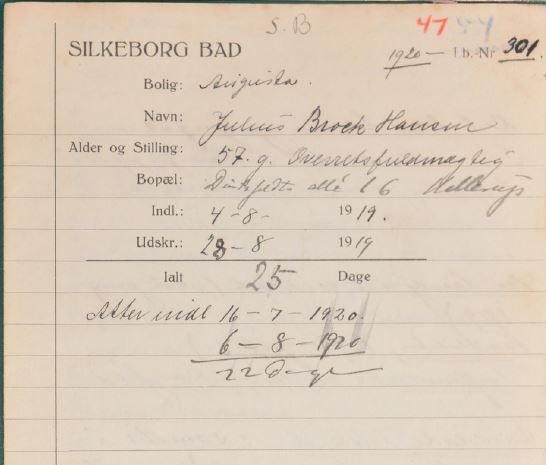 S.B
47 54
SILKEBORG BAD 1920- Lb. Nr 301.
Bolig: Augusta.
Navn: Julius Brock Hansen
Alder og Stilling: 57. g. Overretsfuldmægtig
Bopæl: allé 16 Hellerup
Indl.: 4-8- 1919.
Udskr.: 28-8 1919
Ialt 25 Dage
Atter indl 16-7-1920.
6-8-1920
22 Dage